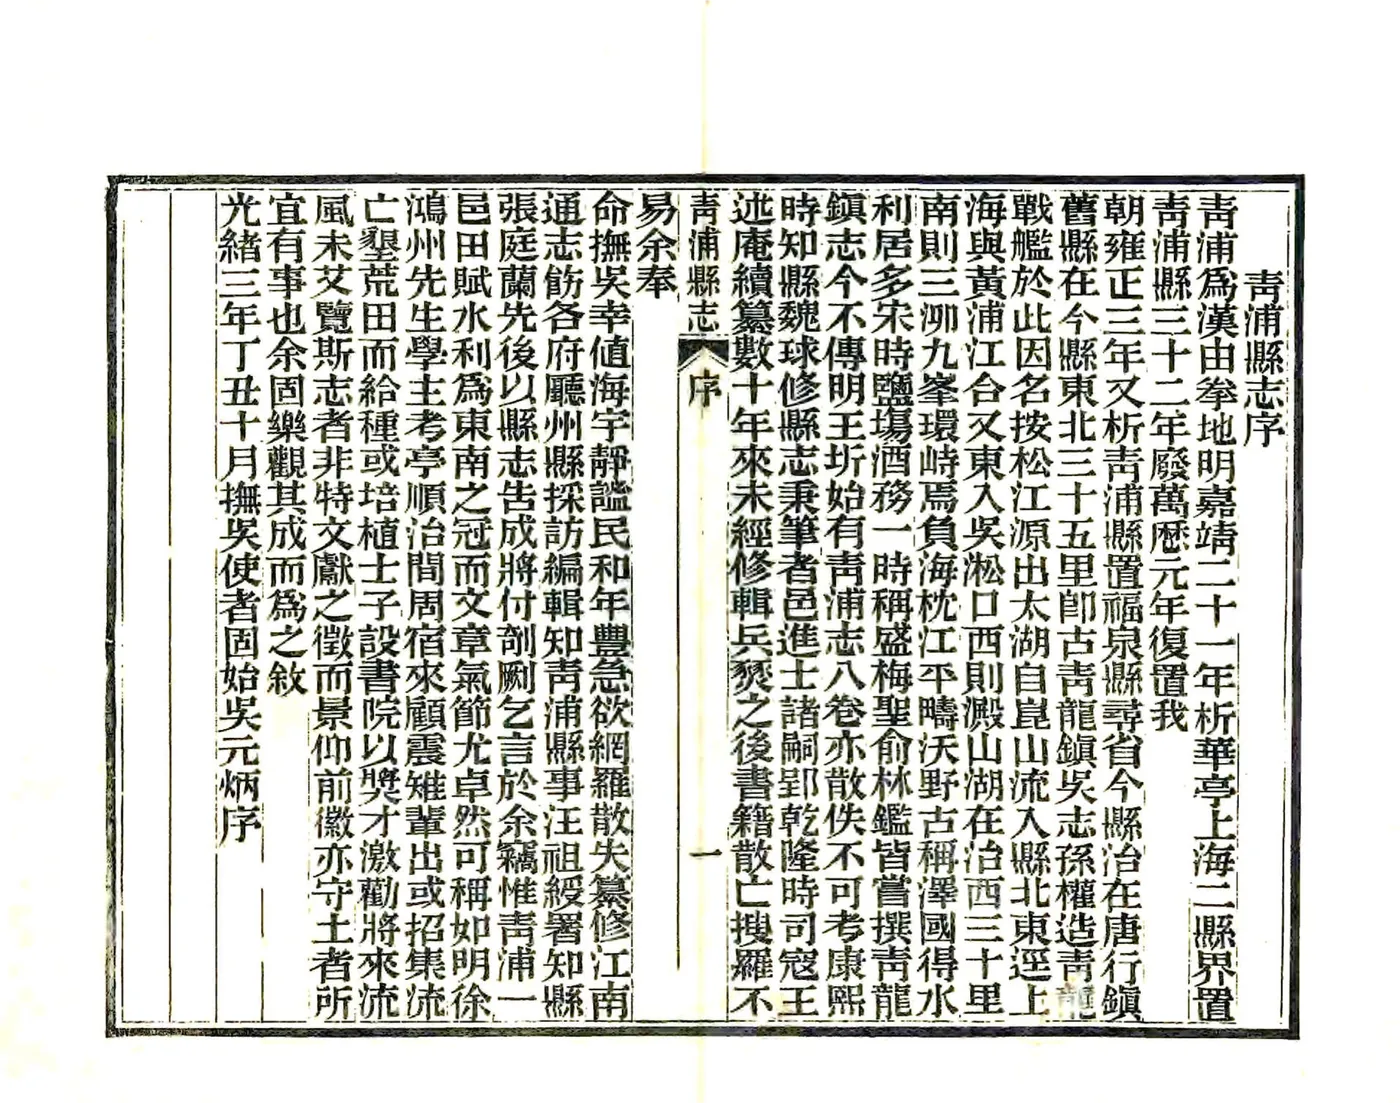 靑浦縣志序
靑浦爲漢由拳地明嘉靖二十一年析華亭上海二縣界置
靑浦縣三十二年廢萬歷元年復置我
朝雍正三年又析靑浦縣置福泉縣尋省今縣治在唐行鎭
舊縣在今縣東北三十五里卽古靑龍鎭吳志孫權造靑龍
戰艦於此因名按松江源出太湖自崑山流入縣北東逕上
海與黃浦江合又東入吳淞口西則澱山湖在治西三十里
南則三泖九峯環峙焉負海枕江平疇沃野古稱澤國得水
利居多宋時鹽塲酒務一時稱盛梅聖俞林鑑皆嘗撰靑龍
鎭志今不傳明王圻始有靑浦志八卷亦散佚不可考康熙
時知縣魏球修縣志秉筆者邑進士諸嗣郢乾隆時司寇王
述庵續纂數十年來未經修輯兵燹之後書籍散亡搜羅不
靑浦縣志 序 一
易余奉
命撫吳幸値海宇靜謐民和年豐急欲網羅散失纂修江南
通志飭各府廳州縣採訪編輯知靑浦縣事汪祖綬署知縣
張庭蘭先後以縣志吿成將付剞劂乞言於余竊惟靑浦一
邑田賦水利爲東南之冠而文章氣節尤卓然可稱如明徐
鴻州先生學主考亭順治間周宿來顧震雉輩出或招集流
亡墾荒田而給種或培植士子設書院以奬才激勸將來流
風未艾覽斯志者非特文獻之徵而景仰前徽亦守土者所
宜有事也余固樂觀其成而爲之敘
光緒三年丁丑十月撫吳使者固始吳元炳序